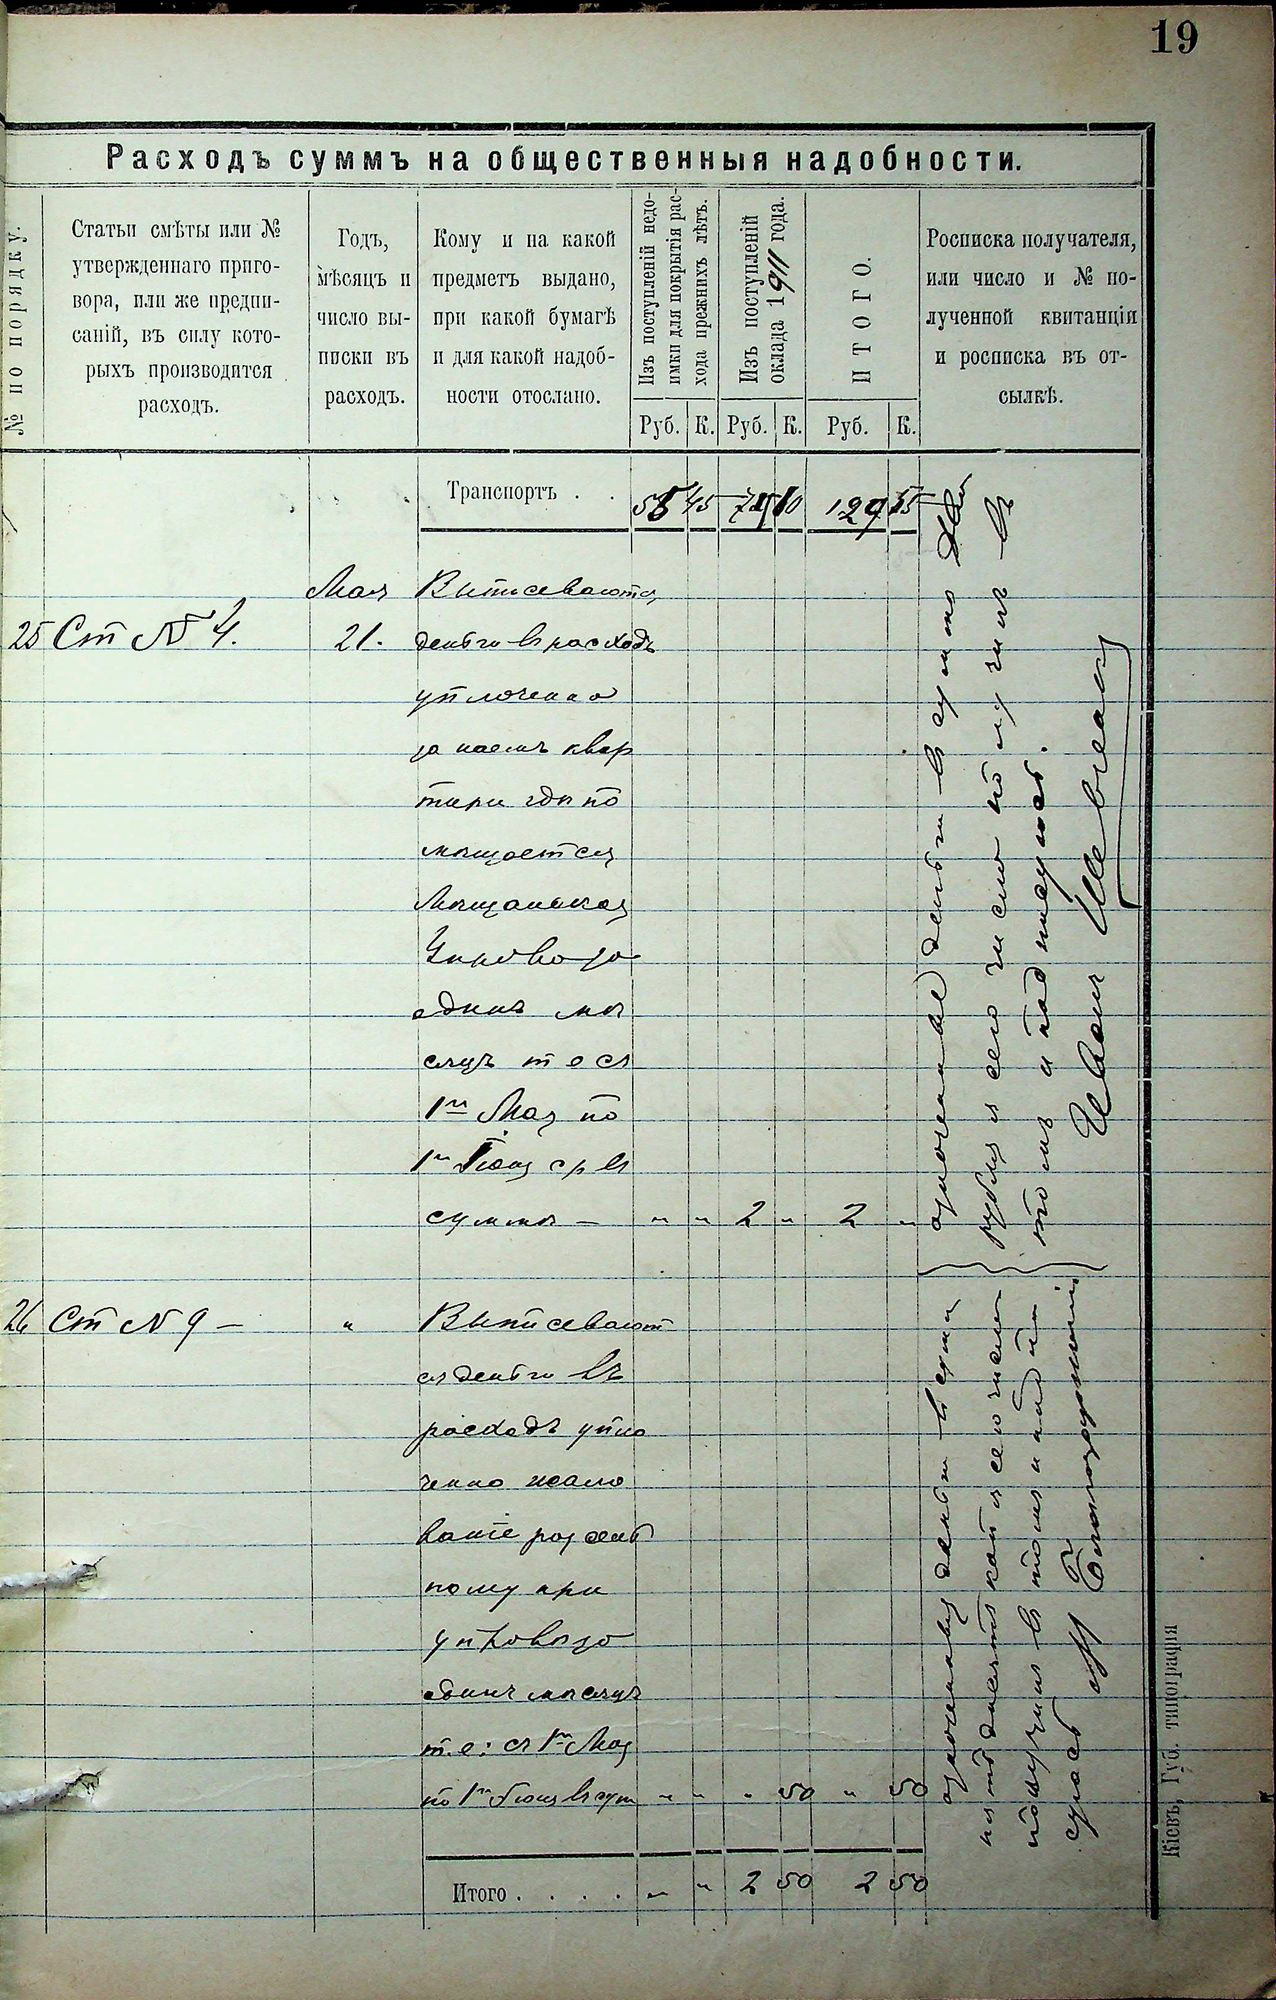 19
Расходъ суммъ на общественныя надобности.
№ по порядку.
Статьи смѣты или №
утвержденнаго приго-
вора, или же предпи-
саній, въ силу кото-
рыхъ производится
расходъ.
Годъ,
мѣсяцъ и
число вы-
писки въ
расходъ.
Кому и на какой
предметъ выдано,
при какой бумагѣ
и для какой надоб-
ности отослано.
Изъ поступленій недо-
имки для покрытія рас-
хода прежнихъ лѣтъ.
Изъ поступленій
оклада 1911 года.
ИТОГО.
Росписка получателя,
или число и № по-
лученной квитанціи
и росписка въ от-
сылкѣ.
Руб. К. Руб. К. Руб. К.
Транспортъ . . 45 129 55
Мая Выписеваются
25 Ст № 4. 21. деньги в расходъ
уплоченно
за наемъ квар
тири где по
мыщается
Мыщанская
Управа за
единъ мы
сяцъ т е съ
1го Мая по
1го Іюня ср въ
суммы — " " 2 " 2 "
означенные деньги в сумме два
рубля я сего число получилъ в
томъ и подписуюсь.
Иванъ
26 Ст № 9 — " Выписевают
ся деньги въ
расходъ упло
ченно жало
ваніе розсиль
ному при
управы за
единъ мысяцъ
т.е: съ 1го Мая
по 1го Іюня в сум " " " 50 " 50
деньги в сум
сего числа
получилъ в томъ и подпи
суюсь
Итого . . . . " " 2 50 2 50
Кіевъ, Губ. типографія